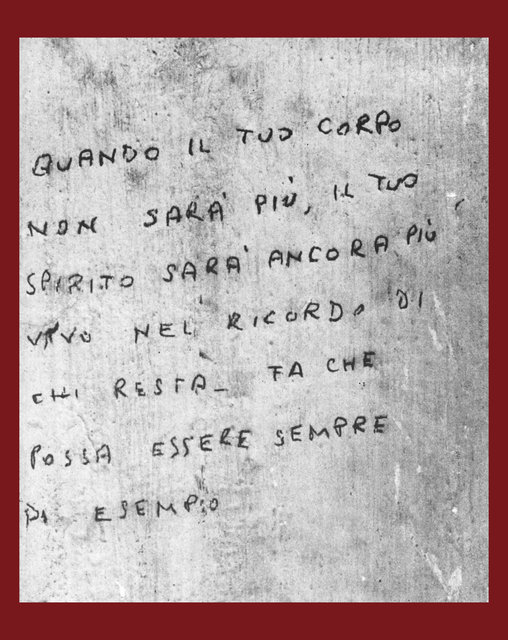 QUANDO IL TUO CORPO
NON SARA' PIÙ, IL TUO
SPIRITO SARA' ANCORA PIÙ
VIVO NEL RICORDO DI
CHI RESTA_ FA CHE
POSSA ESSERE SEMPRE
DI ESEMPIO